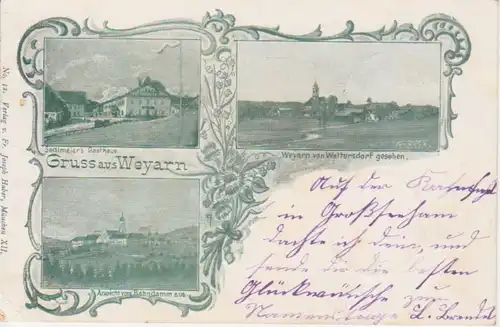 Seidlmeier's Gasthaus
Gruss aus Weyarn
Weyarn von Wattersdorf gesehen.
Ansicht vom Bahndamm aus
No. 12. Verlag v. Fr. Joseph Huber, München XII.
Auf der
in Großseeham
dachte ich dein, und
sende dir die besten
Glückwünsche zum
Namenstage